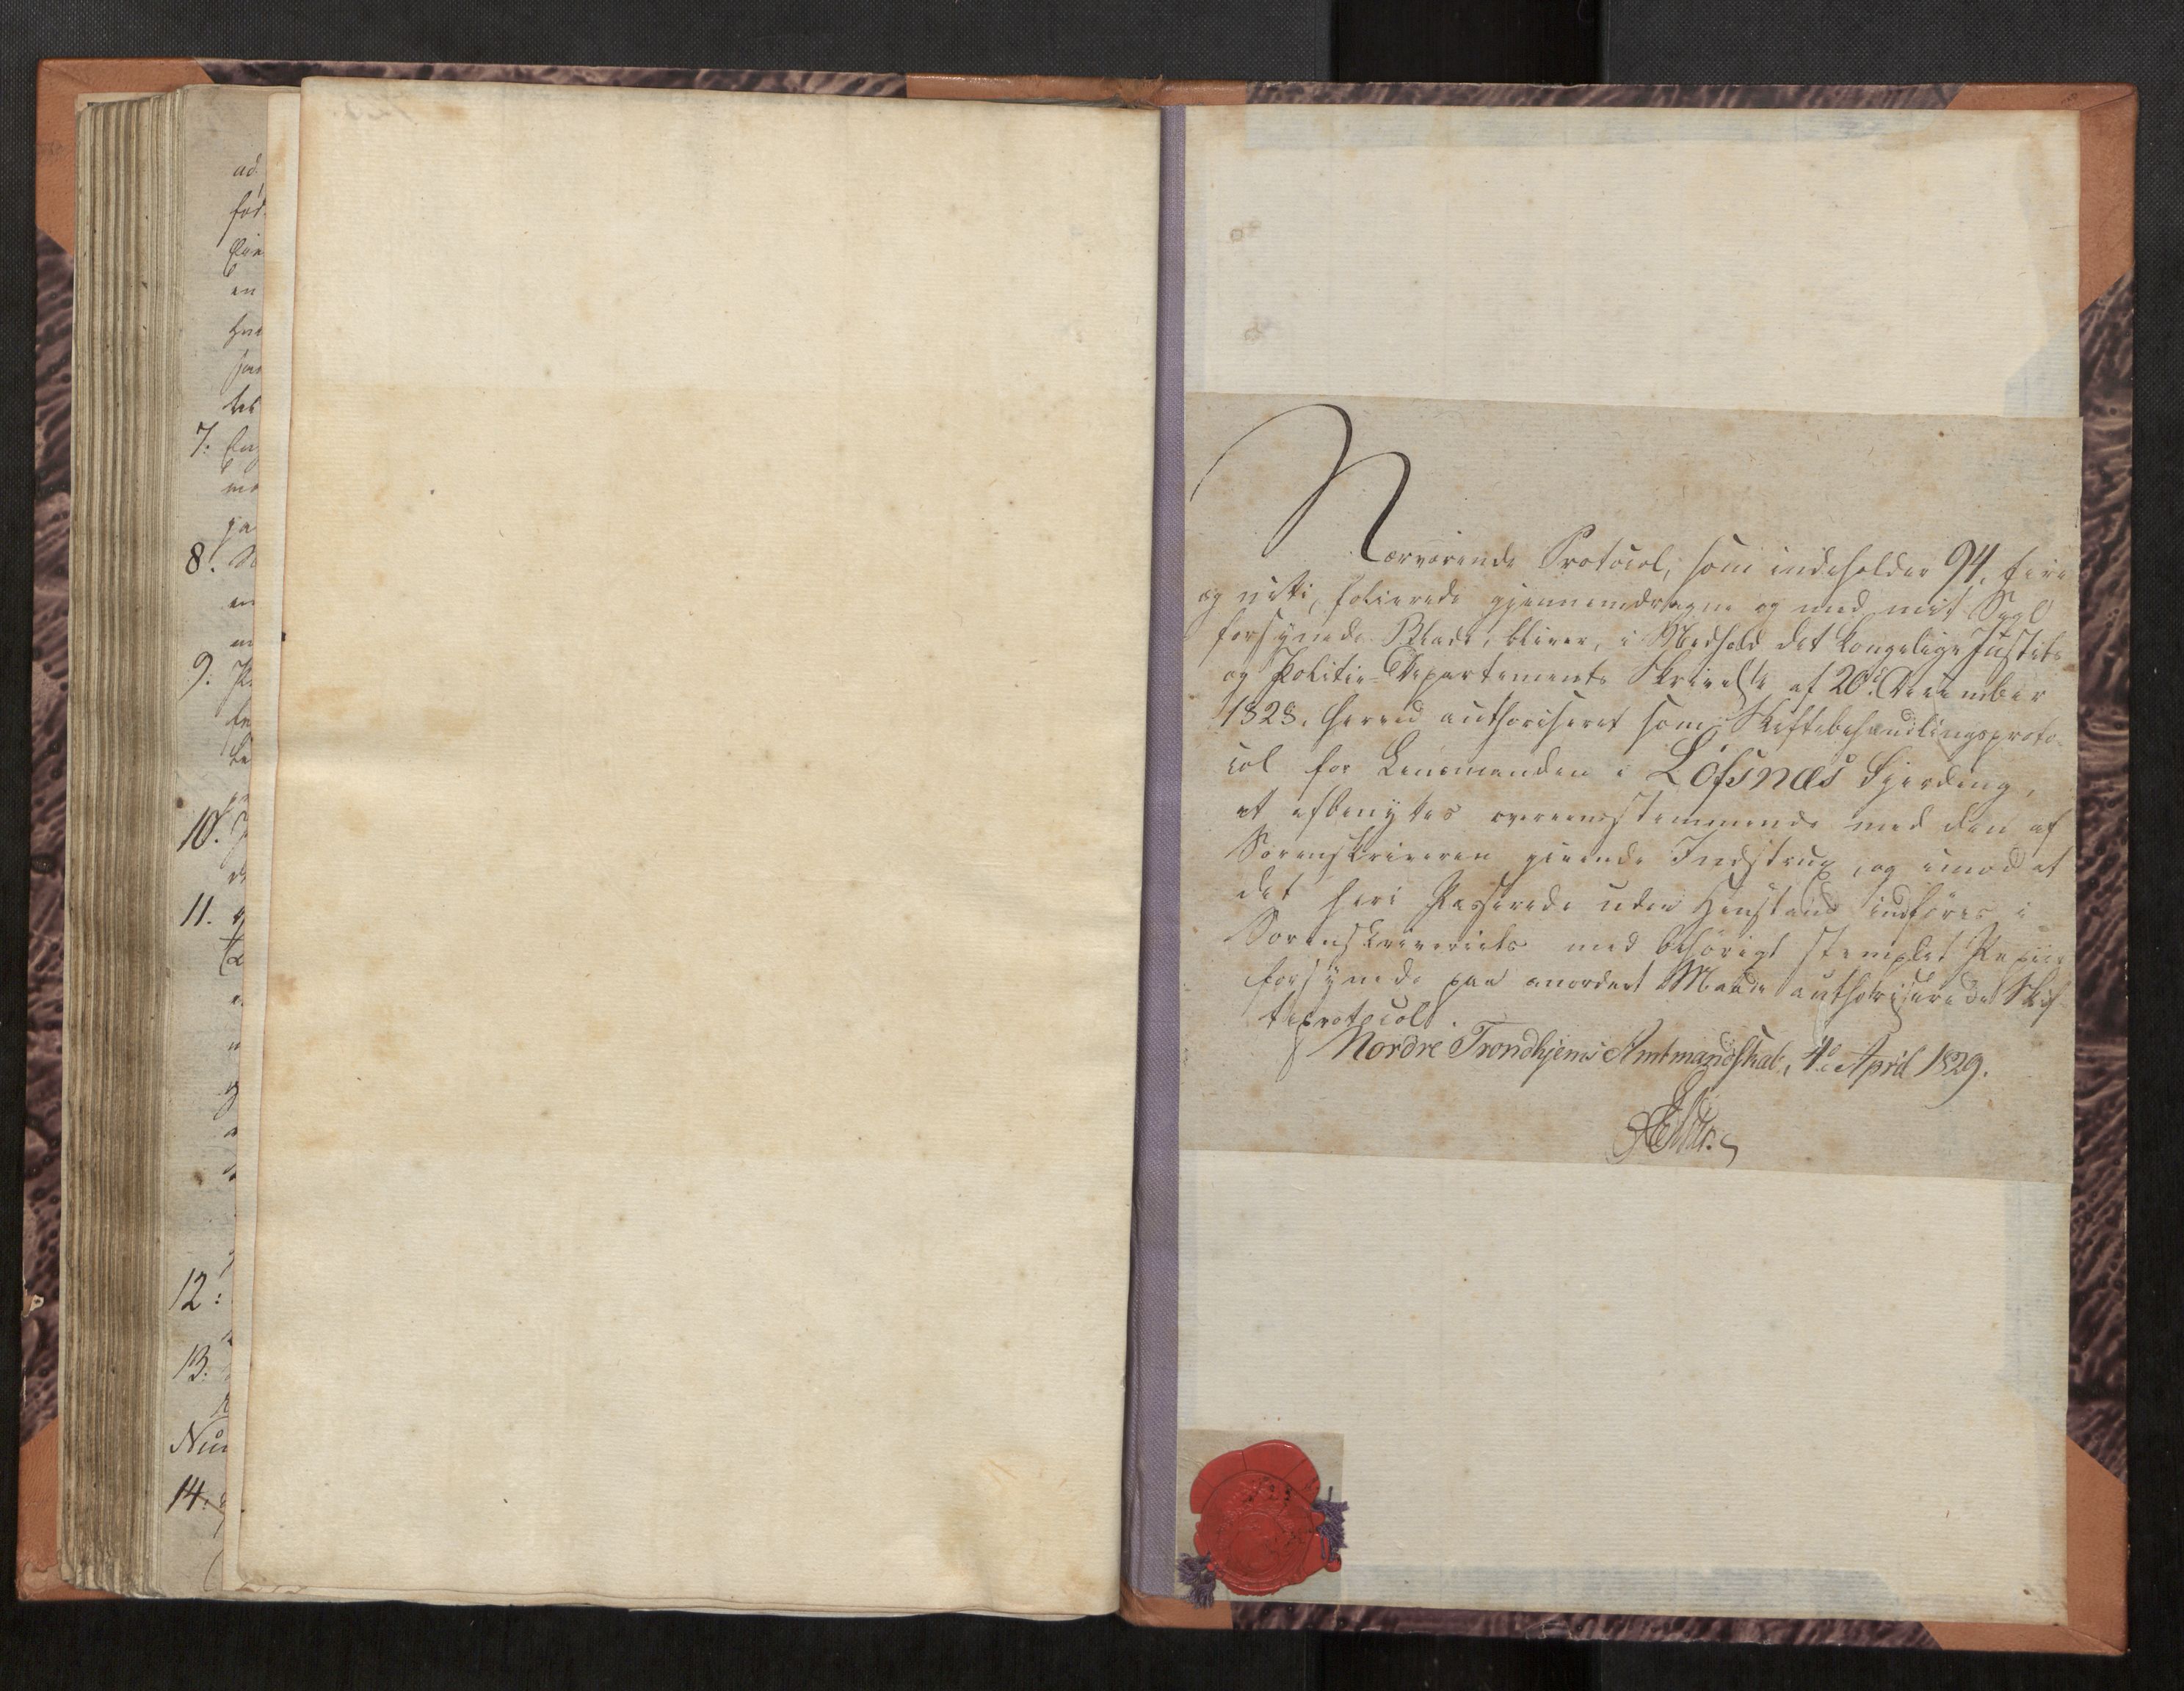 ad
fød
en
7:
ma
ja
8.
en
9.
10.
11.
12:
13.
14.
Nærværende Protocol, som indeholder 94, fire
og niti, folierede gjennemdragne og med mit Segl
forsynede Blade, bliver, i Medhold det kongelige Justits
og Politie-Departements Skrivelse af 20de December
1828. herved authoriseret som Skiftebehandlingsproto-
col for Lensmanden i Løfsnæs Fjerding,
at afbenyttes overeensstemmende med den af
Sorenskriveren givende Instrux, og imod at
det heri Passerede uden Henstand indføres i
Sorenskriveriets med behørigt stemplet Papiir
forsynede paa anordnet Maade authoriserede Skif-
teprotocol.
Nordre Trondhjems Amtmandskab, 4de April 1829.